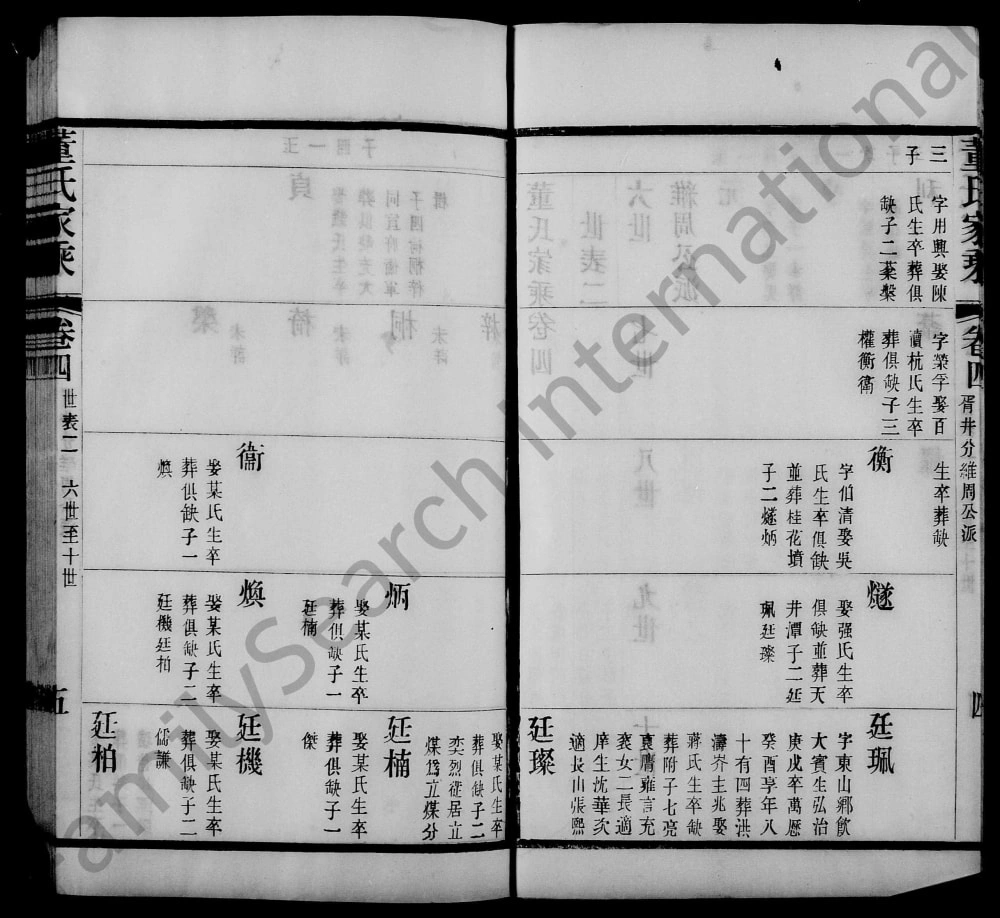 董氏家乘
卷四
胥井分維周公派
四
三子
字用興娶陳
氏生卒葬俱
缺子二蕖槃
字榮孚娶百
瀆杭氏生卒
葬俱缺子三
權衡衞
生卒葬缺
衡
字伯清娶吳
氏生卒俱缺
並葬桂花墳
子二燧炳
燧
娶强氏生卒
俱缺並葬天
井潭子二廷
珮廷璨
廷珮
字東山鄉飲
大賓生弘治
庚戌卒萬歷
癸酉享年八
十有四葬洪
濤夰主兆娶
蔣氏生卒缺
葬附子七亮
袞膺雍言充
裘女二長適
庠生沈華次
適長山張熙
廷璨
娶某氏生卒
葬俱缺子二
奕烈徙居立
煤爲立煤分
炳
娶某氏生卒
葬俱缺子一
廷楠
廷楠
娶某氏生卒
葬俱缺子一
傑
衞
娶某氏生卒
葬俱缺子一
煥
煥
娶某氏生卒
葬俱缺子二
廷機廷柏
廷機
娶某氏生卒
葬俱缺子二
儒謙
廷柏
董氏家乘
卷四
世表二
六世至十世
五
FamilySearch International